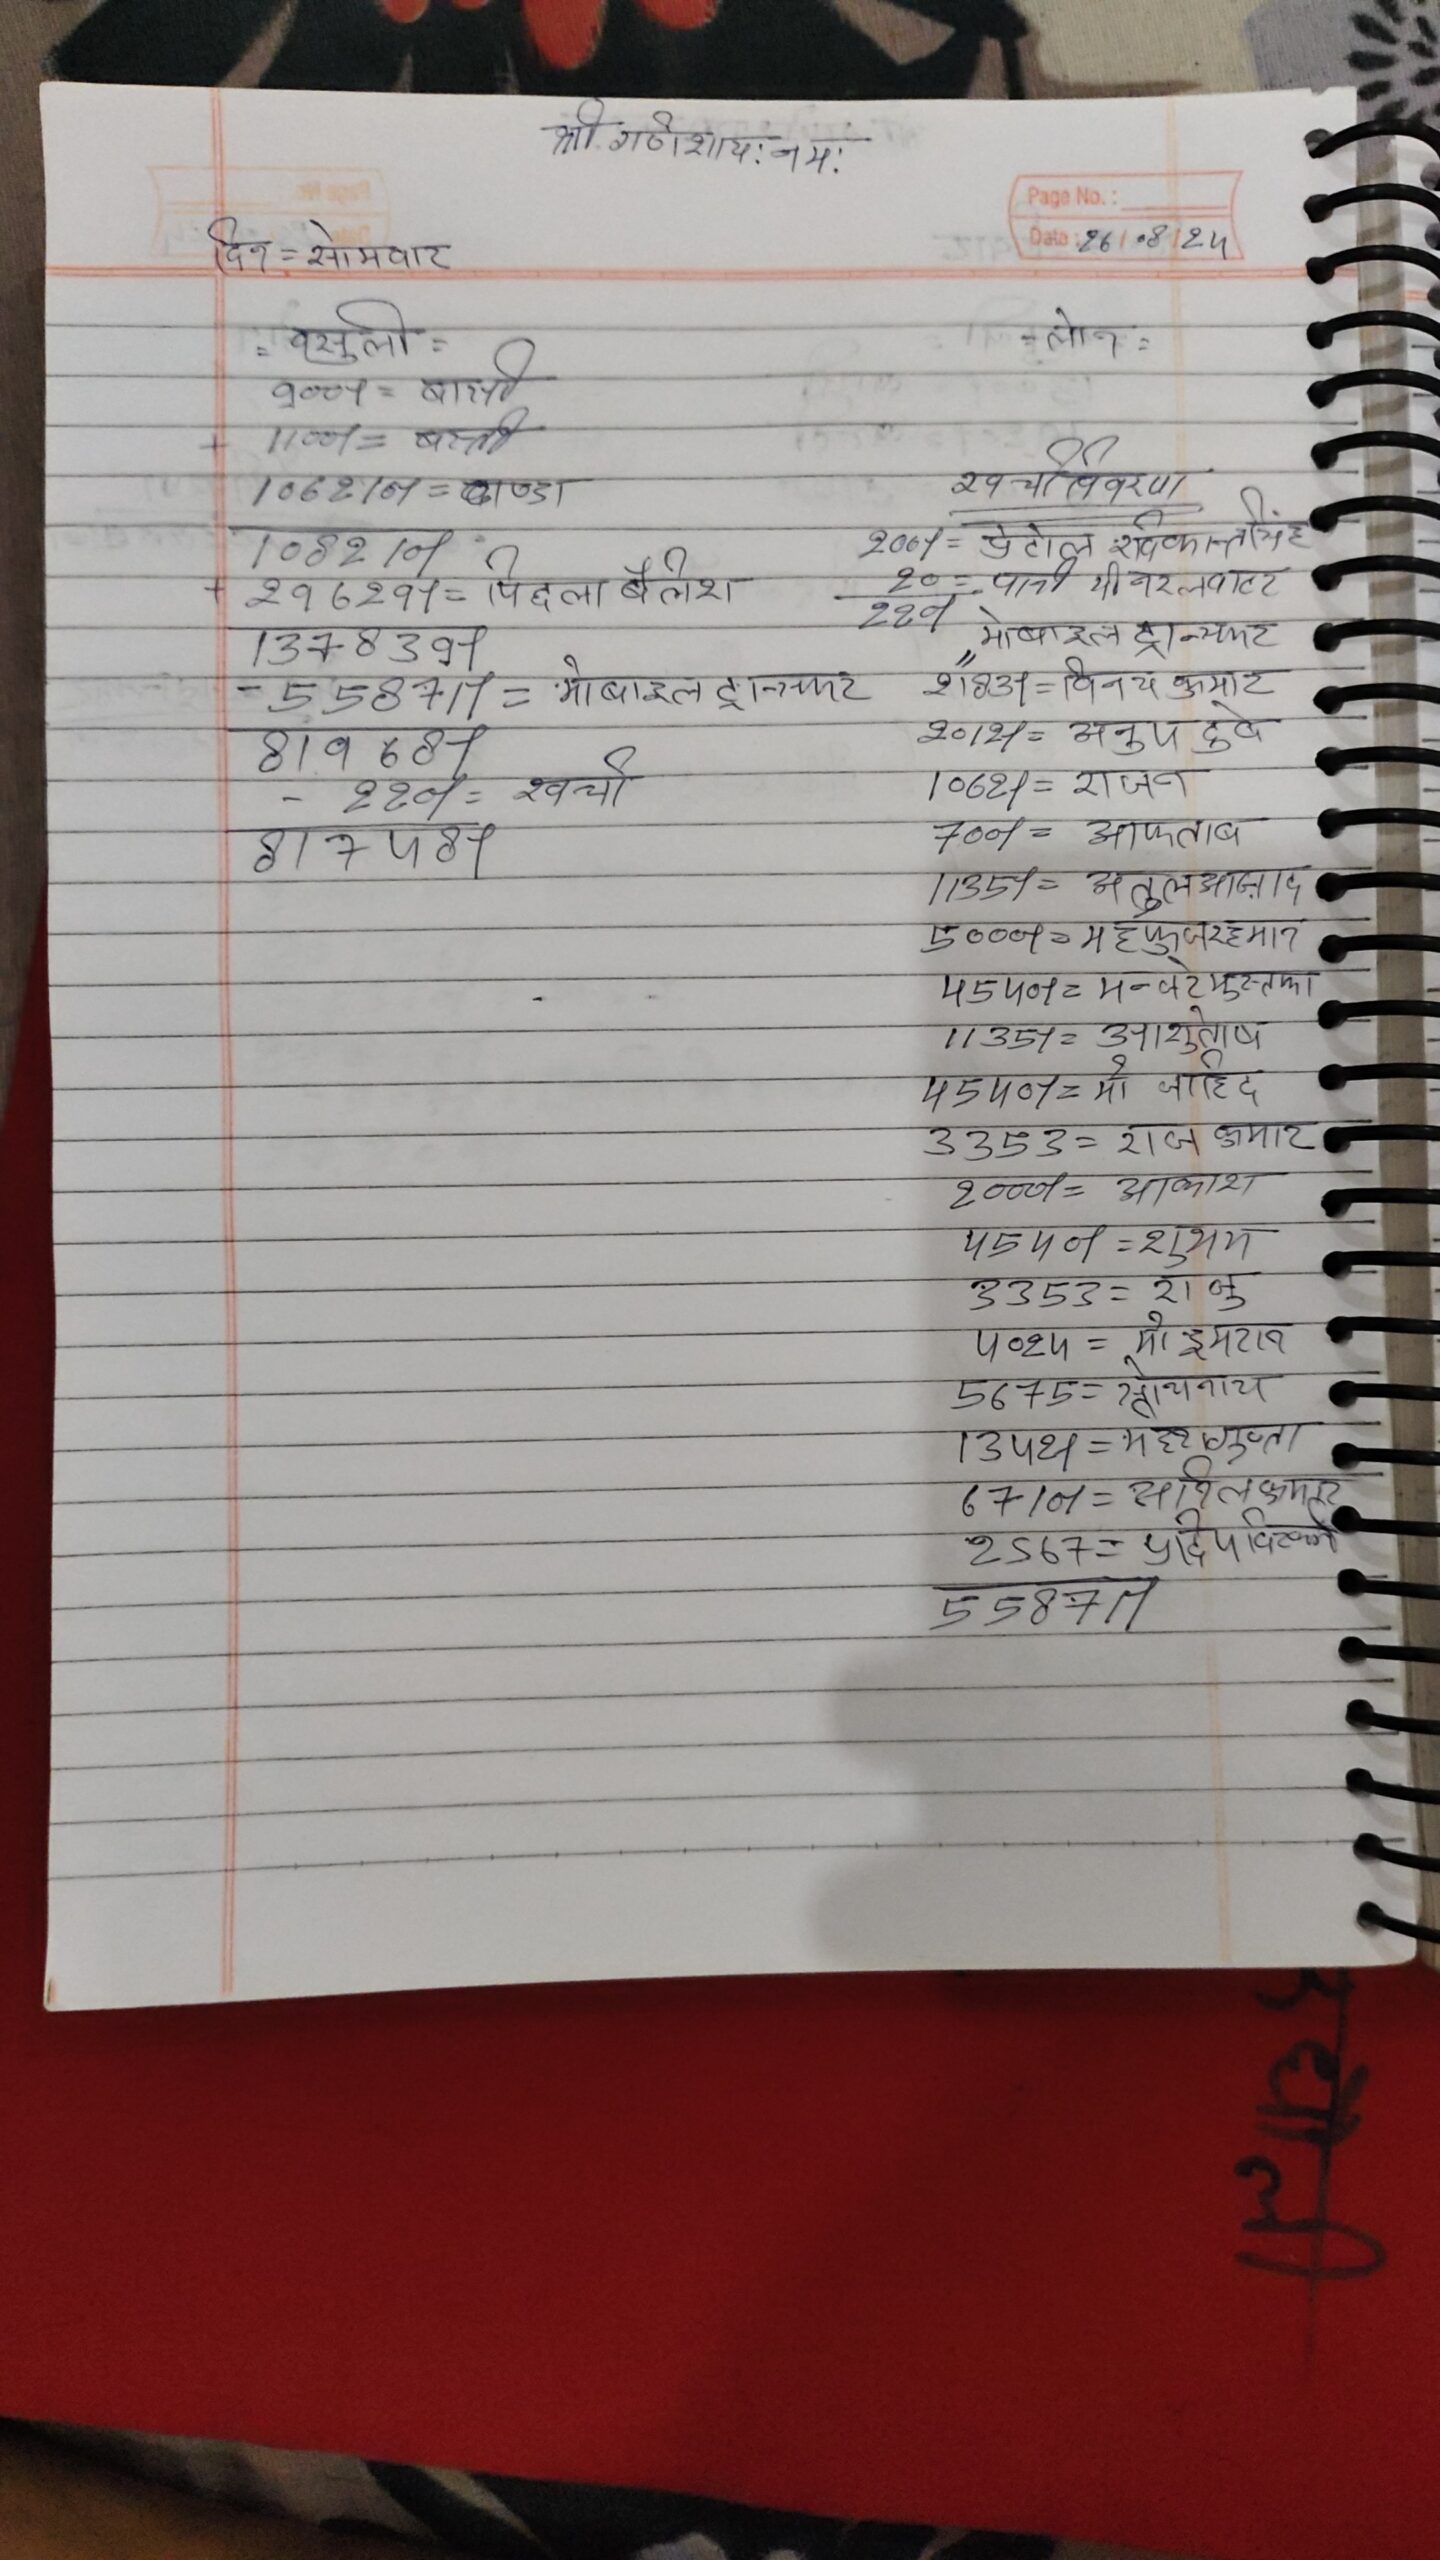 श्री गणेशायः नमः
Page No. :
Date : 26/08/24
दिन = सोमवार
= वसुली =
= लोन =
900/- =
+ 1100/- = बस्ती
106210/- =
108210/-
+ 29629/- = पिछला बैलेंश
137839/-
- 55871/- = मोबाइल ट्रान्सफर
81968/-
- 220/- = खर्चा
81748/-
खर्चा विवरण
200/- = पेट्रोल रविकान्त सिंह
20 = पानी मीनरल वाटर
220/-
" मोबाइल ट्रान्सफर
2183/- = विनय कुमार
2012/- = अनुप दुबे
1062/- = राजन
700/- = आफताब
1135/- = अतुल आजाद
5000/- = महफुज रहमान
4540/- =
1135/- = आशुतोष
4540/- = मो जाहिद
3353 = राज कुमार
2000/- = आकाश
4540/- = शुभम
3353 = राजु
4024 = मो इमरान
5675 =
1342/- = गुप्ता
6710/- = कुमार
2567 = प्रदिप
55871/-